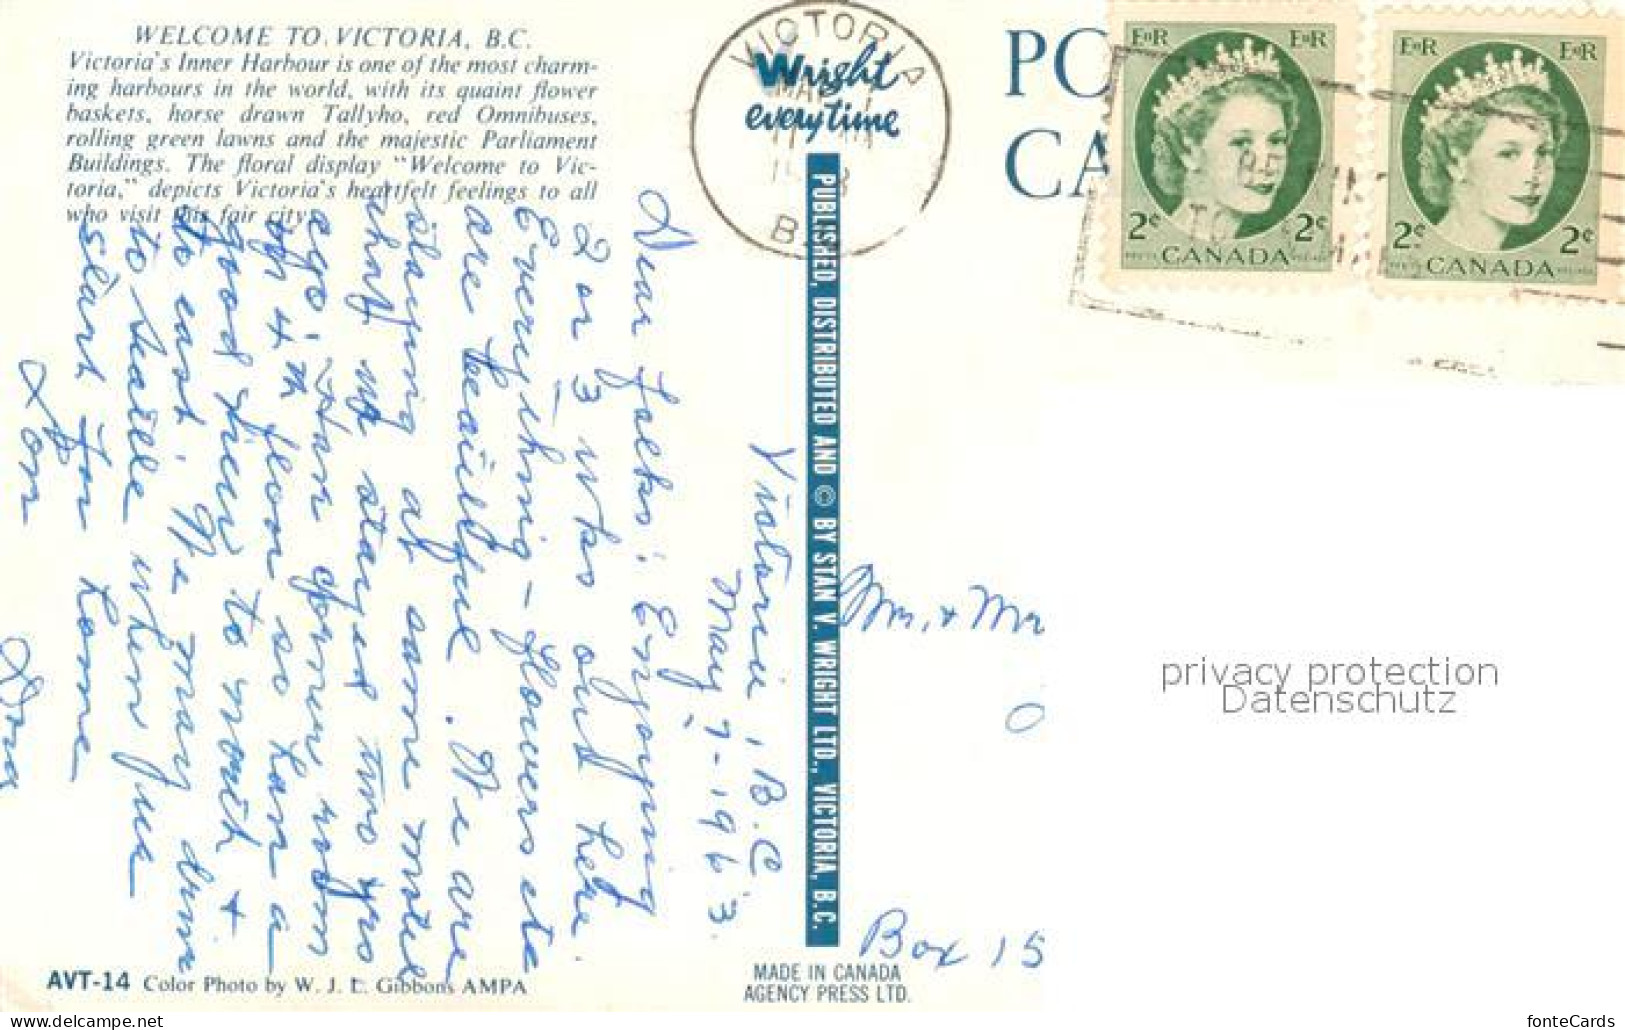 WELCOME TO VICTORIA, B.C.
Victoria's Inner Harbour is one of the most charm-
ing harbours in the world, with its quaint flower
baskets, horse drawn Tallyho, red Omnibuses,
rolling green lawns and the majestic Parliament
Buildings. The floral display "Welcome to Vic-
toria," depicts Victoria's heartfelt feelings to all
who visit this fair city.
VICTORIA
B
Wright
everytime
PO
CA
EIIR EIIR
2¢ 2¢
CANADA
EIIR EIIR
2¢ 2¢
CANADA
PUBLISHED, DISTRIBUTED AND © BY STAN V. WRIGHT LTD., VICTORIA, B.C.
Victoria, B.C
May 7-1963.
Dear Folks: Enjoying
2 or 3 wks out here.
Everything - flowers etc
are beautiful. We are
staying at same motel
that we stayed two yrs
ago. Have corner room
on 4th floor so have a
good view to north +
to east. We may drive
to Seattle when we
start for home
Mr. + Mr
Box 15
privacy protection
Datenschutz
AVT-14 Color Photo by W. J. L. Gibbons AMPA
MADE IN CANADA
AGENCY PRESS LTD.
https://www.delcampe.net/
fonteCards